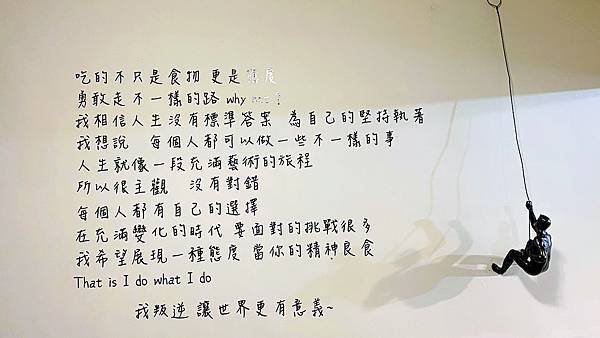 吃的不只是食物 更是態度
勇敢走不一樣的路 why not ?
我相信人生沒有標準答案 為自己的堅持執著
我想說 每個人都可以做一些不一樣的事
人生就像一段充滿藝術的旅程
所以很主觀 沒有對錯
每個人都有自己的選擇
在充滿變化的時代 要面對的挑戰很多
我希望展現一種態度 當你的精神良食
That is I do what I do
我叛逆讓世界更有意義~